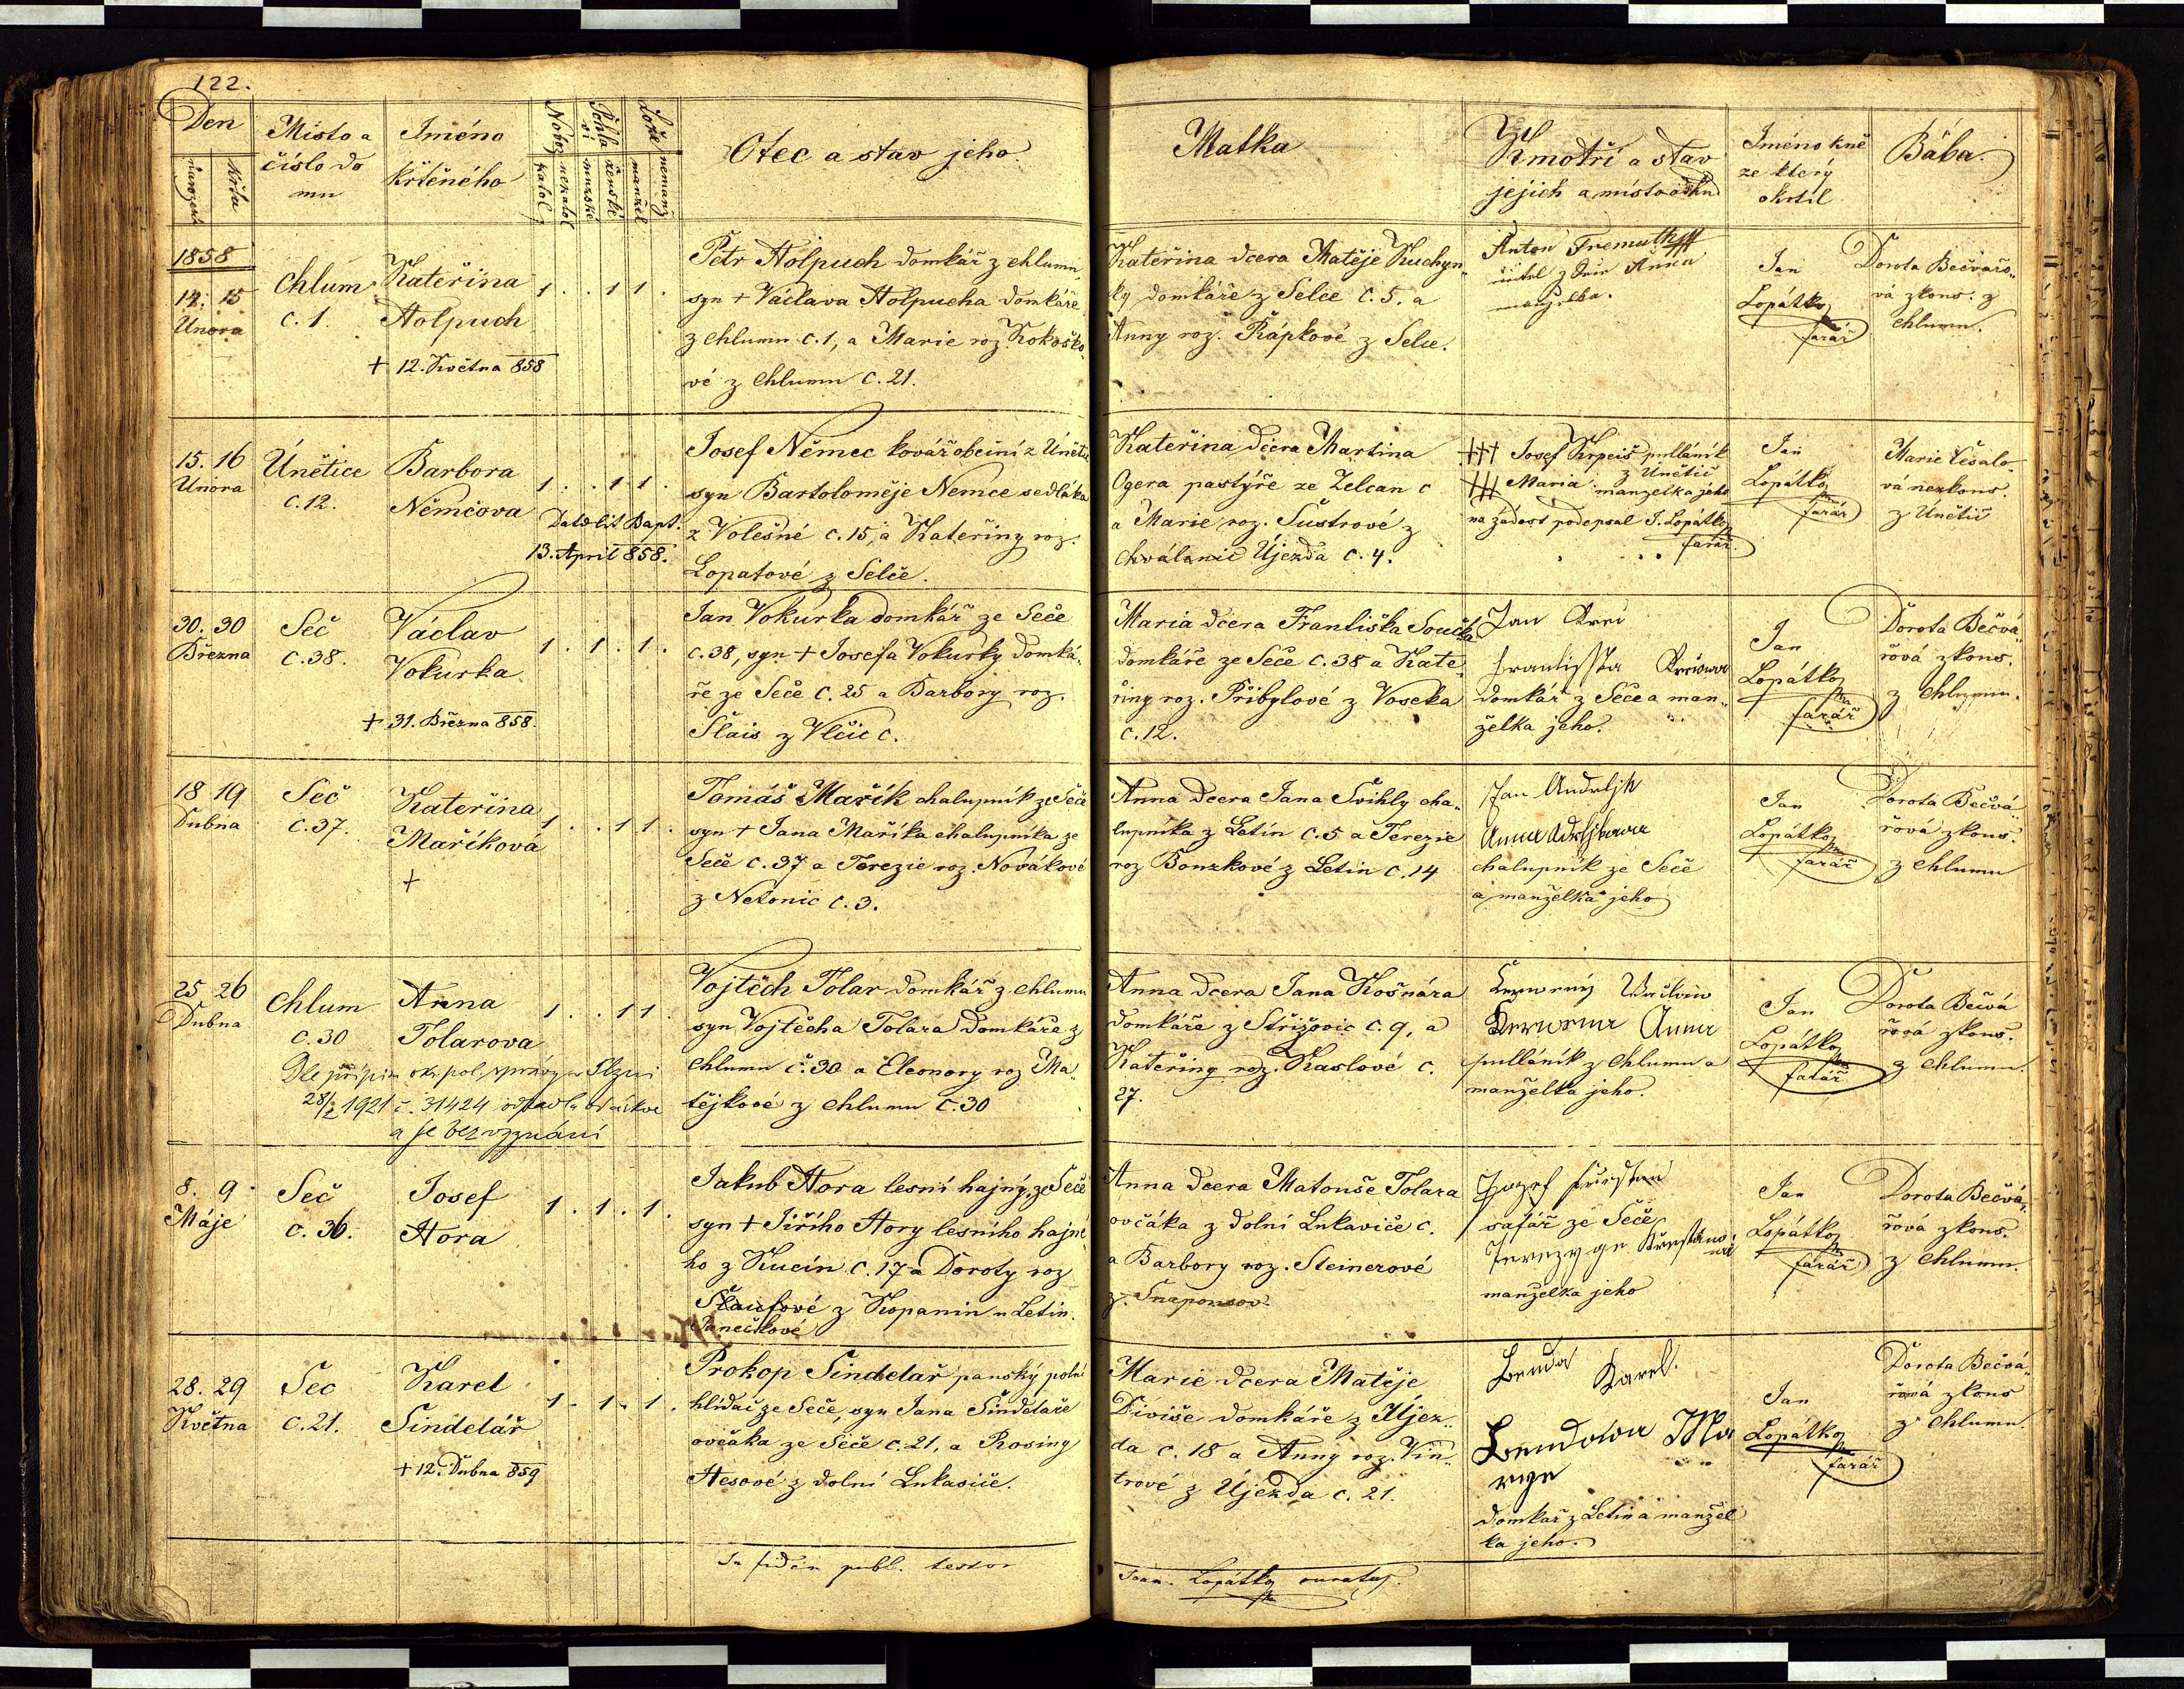 122.
Den
narozen
křtu
Místo a
číslo do
mu
Iméno
křtěného
Nábož
katol
nekatol
Pohla
ví
mužské
ženské
Lože
manžel
nemanž
Otec a stav jeho.
Matka
Kmotři a stav
jejich a místo
Iméno kně
ze který
okřtil
Bába.
1858
14. 15
Února
Chlum
č. 1.
Kateřina
Holpuch
+ 12. Května 858
1 . . 1 1 .
Petr Holpuch domkář z Chlumu,
syn + Václava Holpucha domkáře
z Chlumu č. 1, a Marie roz Kokoško„
vé z Chlumu č. 21.
Kateřina dcera Matěje Kuchyn„
ky domkáře z Selce č. 5. a
Anny roz. Řápkové z Selce.
Anton Fremuth
Anna
Jan
Lopátko
farář
Dorota Bečvářo„
vá zkouš. z
Chlumu.
15. 16
Února
Únětice
č. 12.
Barbora
Němcova
Dato lit Bapt.
13. April 858.
1 . . 1 1 .
Josef Němec kovář obecní z Únětic
syn Bartoloměje Nemce sedláka
z Volešné č. 15, a Kateřiny roz.
Lopatové z Selce.
Kateřina dcera Martina
Ogera pastýře ze Želcan č
a Marie roz. Šustrové z
Chválenic Újezda č. 4.
+++ Josef Krpeis pulláník
z Únětic
+++ Maria manzelka jeho
na žádost podepsal J. Lopátko
farář.
Jan
Lopátko
farář
Marie Česalo„
vá nezkouš.
z Únětic
30. 30
Března
Seč
č. 38.
Václav
Vokurka
+ 31. Března 858.
1 . 1 . 1 .
Jan Vokurka domkář ze Seče
č. 38, syn + Josefa Vokurky domká„
ře ze Seče č. 25 a Barbory roz.
Šlais z Vlčic č.
Maria dcera Františka Součka
domkáře ze Seče č. 38 a Kate„
řiny roz. Přibylové z Voseka
č. 12.
Jan
domkář z Seče a man„
želka jeho.
Jan
Lopátko
farář
Dorota Bečvá„
řová zkouš.
z Chlumu.
18 19
Dubna
Seč
č. 37.
Kateřina
Maříková
+
1 . . 1 1 .
Tomáš Mařík chalupník ze Seče
syn + Jana Maříka chalupníka ze
Seče č. 37 a Terezie roz. Novákové
z Netonic č. 3.
Anna dcera Jana Švihly cha„
lupníka z Letin č. 5 a Terezie
roz Bouzkové z Letin č. 14
Jan
Anna
chalupník ze Seče
a manželka jeho
Jan
Lopátko
farář
Dorota Bečvá„
řová zkouš.
z Chlumu
25 26
Dubna
Chlum
č. 30
Anna
Tolarova
Dle přípisu ok. pol. správy
28/2 1921 č. 31424 odpadla od církve
a je bez vyznání
1 . . 1 1
Vojtěch Tolar domkář z Chlumu
syn Vojtěcha Tolara domkáře z
Chlumu č. 30 a Eleonory roz Ma„
tějkové z Chlumu č. 30
Anna dcera Jana Košnára
domkáře z Střižovic č. 9, a
Kateřiny roz. Kaslové č.
27.
Anna
pulláník z Chlumu a
manželka jeho.
Jan
Lopátko
farář
Dorota Bečvá
řová zkouš.
z Chlumu.
8. 9.
Máje
Seč
č. 36.
Josef
Hora
1 . 1 . 1 .
Jakub Hora lesní hajný, ze Seče
syn + Jiřího Hory lesního hajné„
ho z Kucín č. 17 a Doroty roz
z Kopanin u Letin.
Janečkové
Anna dcera Matouše Tolara
ovčáka z dolní Lukavice č.
a Barbory roz. Steinerové
z
Jozef
šafář ze Seče
manželka jeho
Jan
Lopátko
farář
Dorota Bečvá„
řová zkouš.
z Chlumu.
28. 29
Května
Seč
č. 21.
Karel
Sindelář
+ 12. Dubna 859
1 . 1 . 1 .
Prokop Sindelař panský polní
hlídač ze Seče, syn Jana Sindelaře
ovčáka ze Seče č. 21, a Rosiny
Hesové z dolní Lukavice.
Marie dcera Matěje
Diviše domkáře z Újez„
da č. 18 a Anny roz. Vin„
trové z Újezda č. 21.
Benda Karel.
Bendowa Ma
rye
domkář z Letin a manžel
ka jeho.
Jan
Lopátko
farář
Dorota Bečvá„
řová zkouš
z Chlumu.
In fidem publ. testor
Joan. Lopátko curatus.